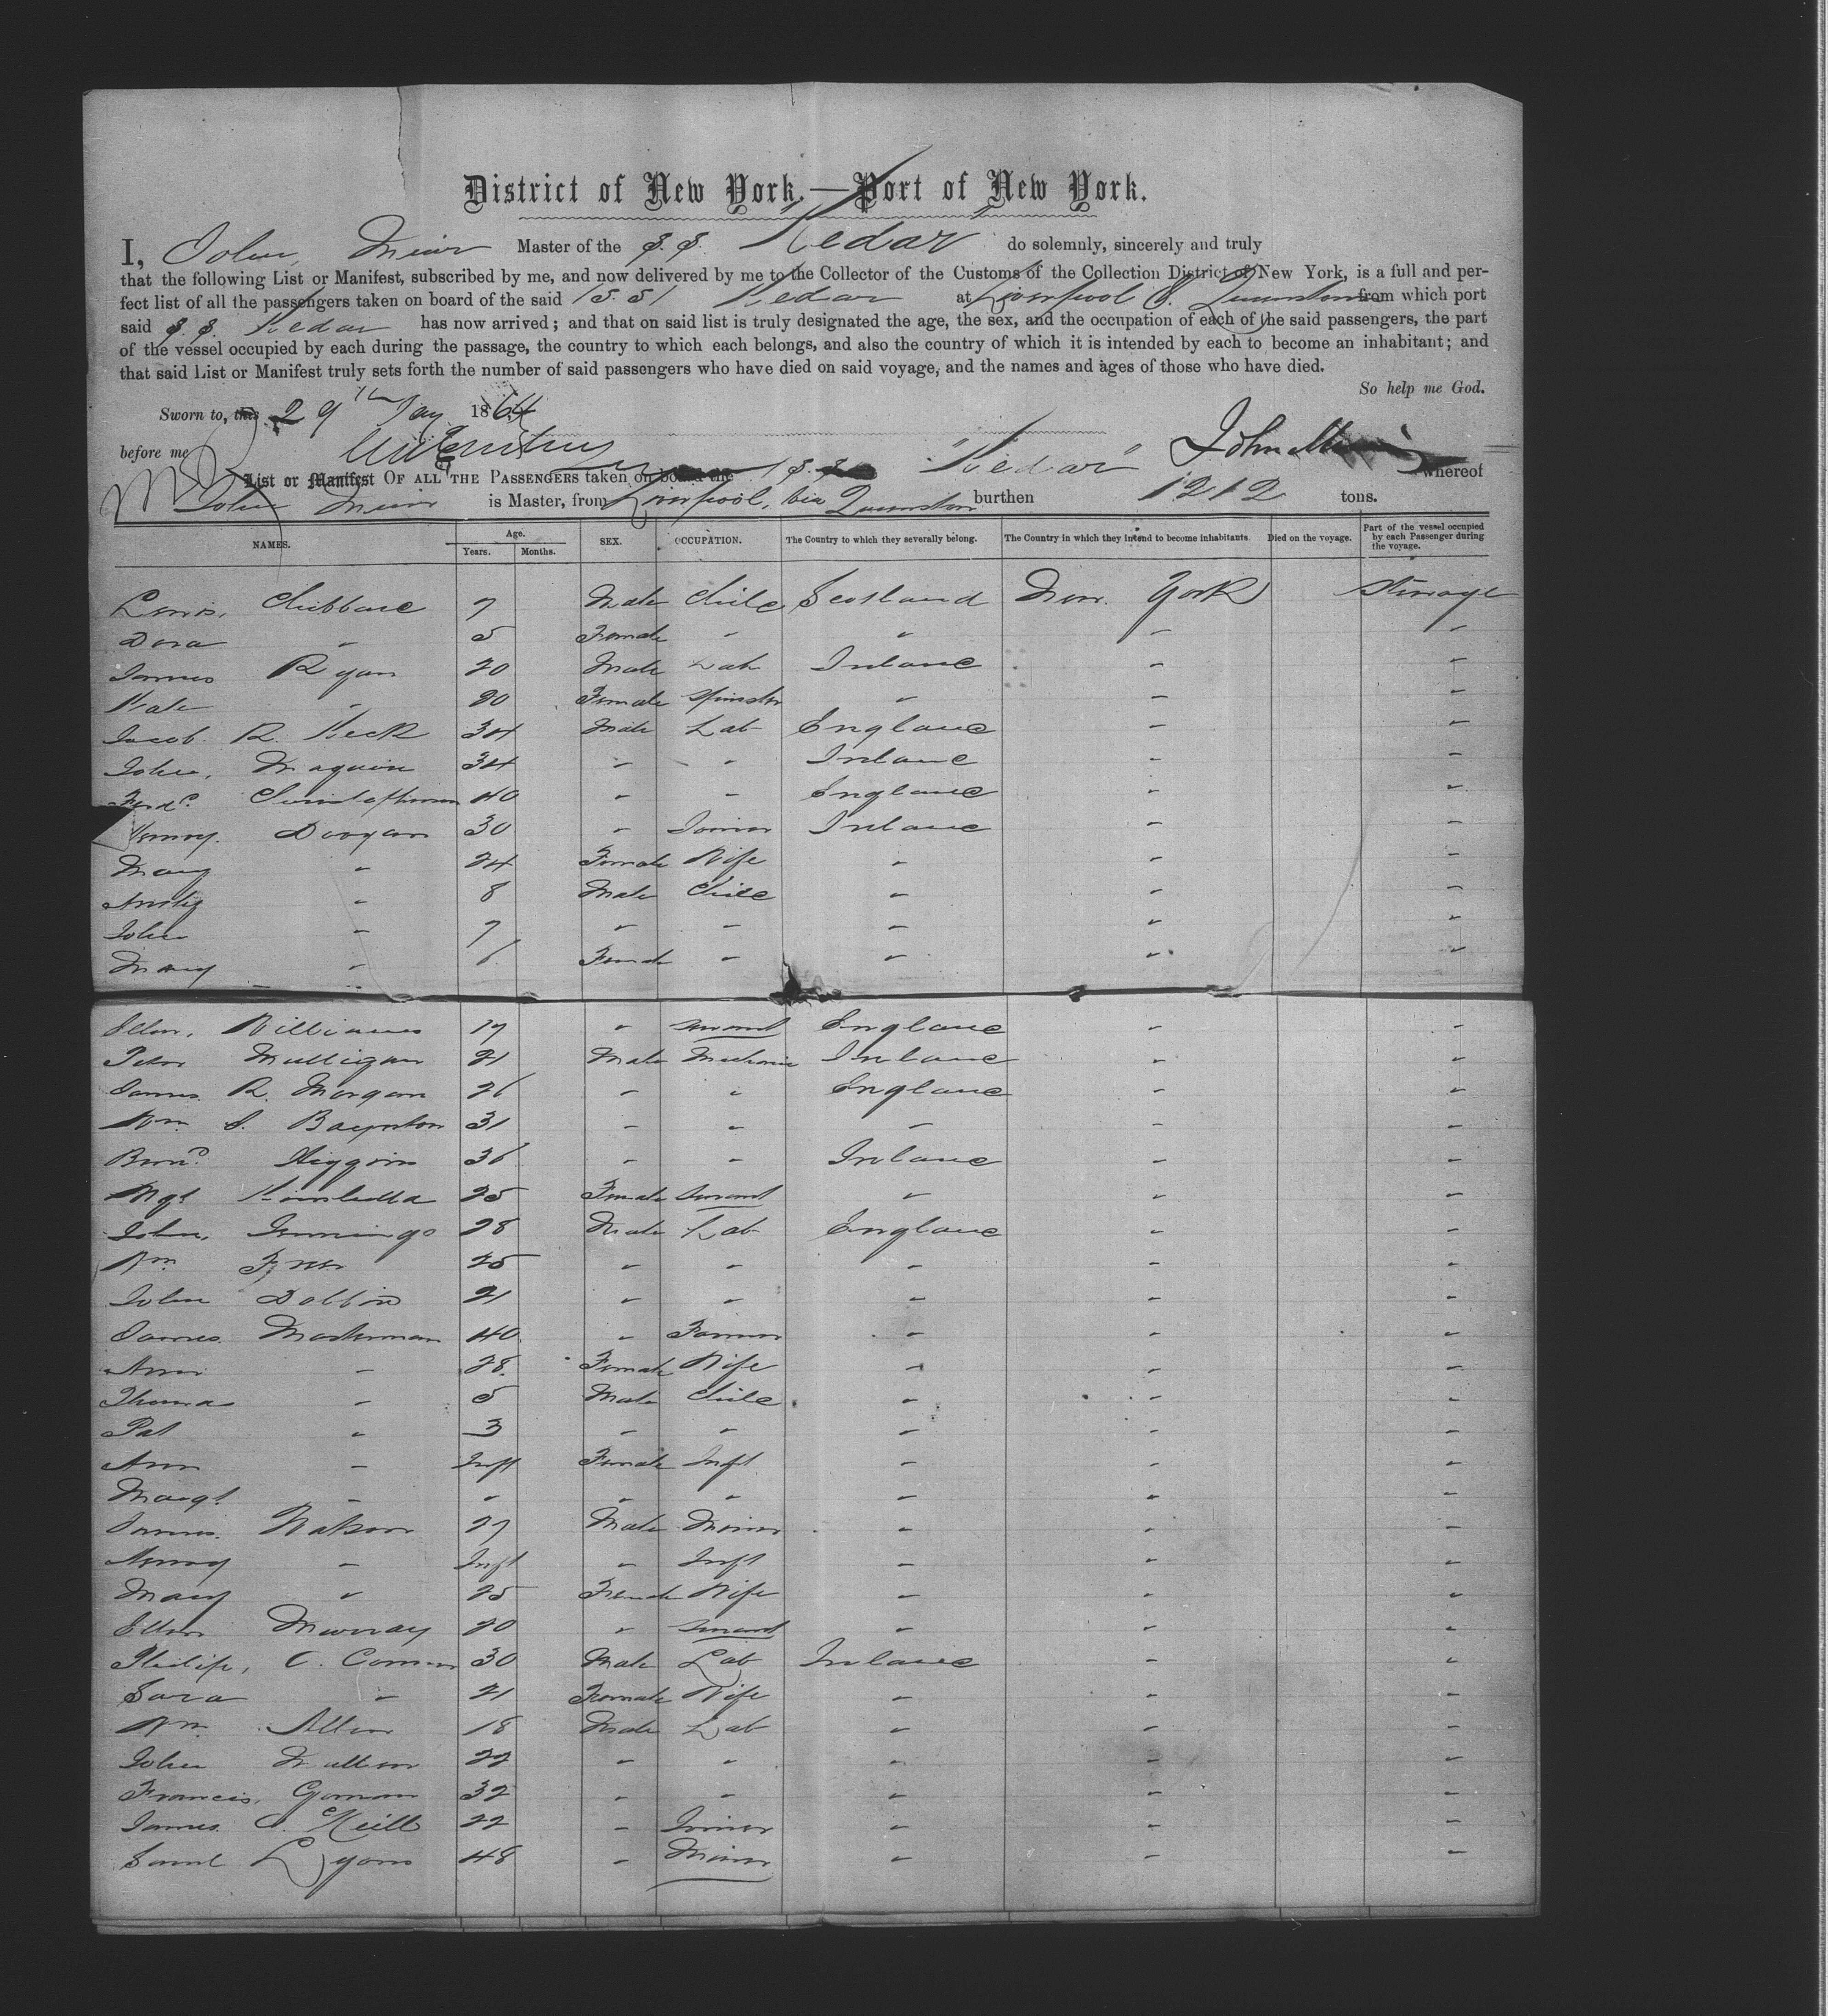 District of New York.—Port of New York.
I, John Muir Master of the S.S. Kedar do solemnly, sincerely and truly
that the following List or Manifest, subscribed by me, and now delivered by me to the Collector of the Customs of the Collection District of New York, is a full and per-
fect list of all the passengers taken on board of the said Kedar at Liverpool & from which port
said S.S. Kedar has now arrived; and that on said list is truly designated the age, the sex, and the occupation of each of the said passengers, the part
of the vessel occupied by each during the passage, the country to which each belongs, and also the country of which it is intended by each to become an inhabitant; and
that said List or Manifest truly sets forth the number of said passengers who have died on said voyage, and the names and ages of those who have died.
So help me God.
Sworn to, this 29th 1864
before me John Muir
List or Manifest OF ALL THE PASSENGERS taken on board the S.S. "Kedar" whereof
John Muir is Master, from Liverpool, via burthen 1212 tons.
NAMES. Age. Years. Months. SEX. OCCUPATION. The Country to which they severally belong. The Country in which they intend to become inhabitants. Died on the voyage. Part of the vessel occupied by each Passenger during the voyage.
7 Male Child Scotland New York Steerage
Dora " 5 Female " " " "
James Ryan 20 Male Lab Ireland " "
Kate " 20 Female Spinster " " "
Jacob R. Keck 34 Male Lab England " "
John, Maguire 34 " " Ireland " "
40 " " England " "
Henry. Doogan 30 " Joiner Ireland " "
Mary " 24 Female Wife " " "
" 8 Male Child " " "
John " 7 " " " " "
Mary " 6 Female " " " "
Ellen, Williams 17 " Servant England " "
Peter Mulligan 21 Male Mechanic Ireland " "
James R. Morgan 26 " " England " "
Wm. S. Baynton 31 " " " " "
Higgins 36 " " Ireland " "
Mgt 25 Female Servant " " "
John, Jennings 28 Male Lab England " "
Wm. 25 " " " " "
John Dobbin 21 " " " " "
James. Masterman 40 " Farmer " " "
Ann " 28. Female Wife " " "
Thomas " 5 Male Child " " "
Pat " 3 " " " " "
Ann " Inft Female Inft " " "
Margt. " " " " " " "
James. Watson 27 Male Miner " " "
Henry " Inft " Inft " " "
Mary " 25 Female Wife " " "
Ellen Murray 20 " Servant " " "
Philip, O. Connor 30 Male Lab Ireland " "
Sara " 21 Female Wife " " "
Wm. Allen 18 Male Lab " " "
John 22 " " " " "
Francis, Gorman 32 " " " " "
James. O. Neill 22 " Joiner " " "
Saml Lyons 48 " Miner " " "